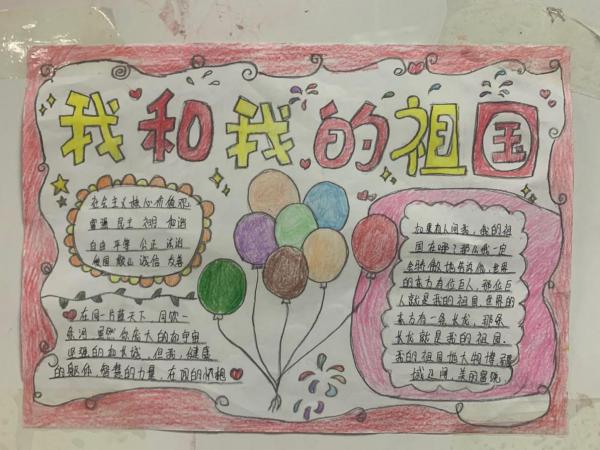 我和我的祖国
社会主义核心价值观
富强 民主 文明 和谐
自由 平等 公正 法治
爱国 敬业 诚信 友善
在同一片蓝天下，同饮一
条河，
坚强的如长城，但我，健康
的躯体，智慧的力量，在
如果有人问我，我的祖
国在哪？那么我一定
会骄傲地告诉你，世界
的东方有位巨人，那位巨
人就是我的祖国，世界的
东方有一条长龙，那条
长龙就是我的祖国。
我的祖国地大物博，疆
域辽阔，美丽富饶